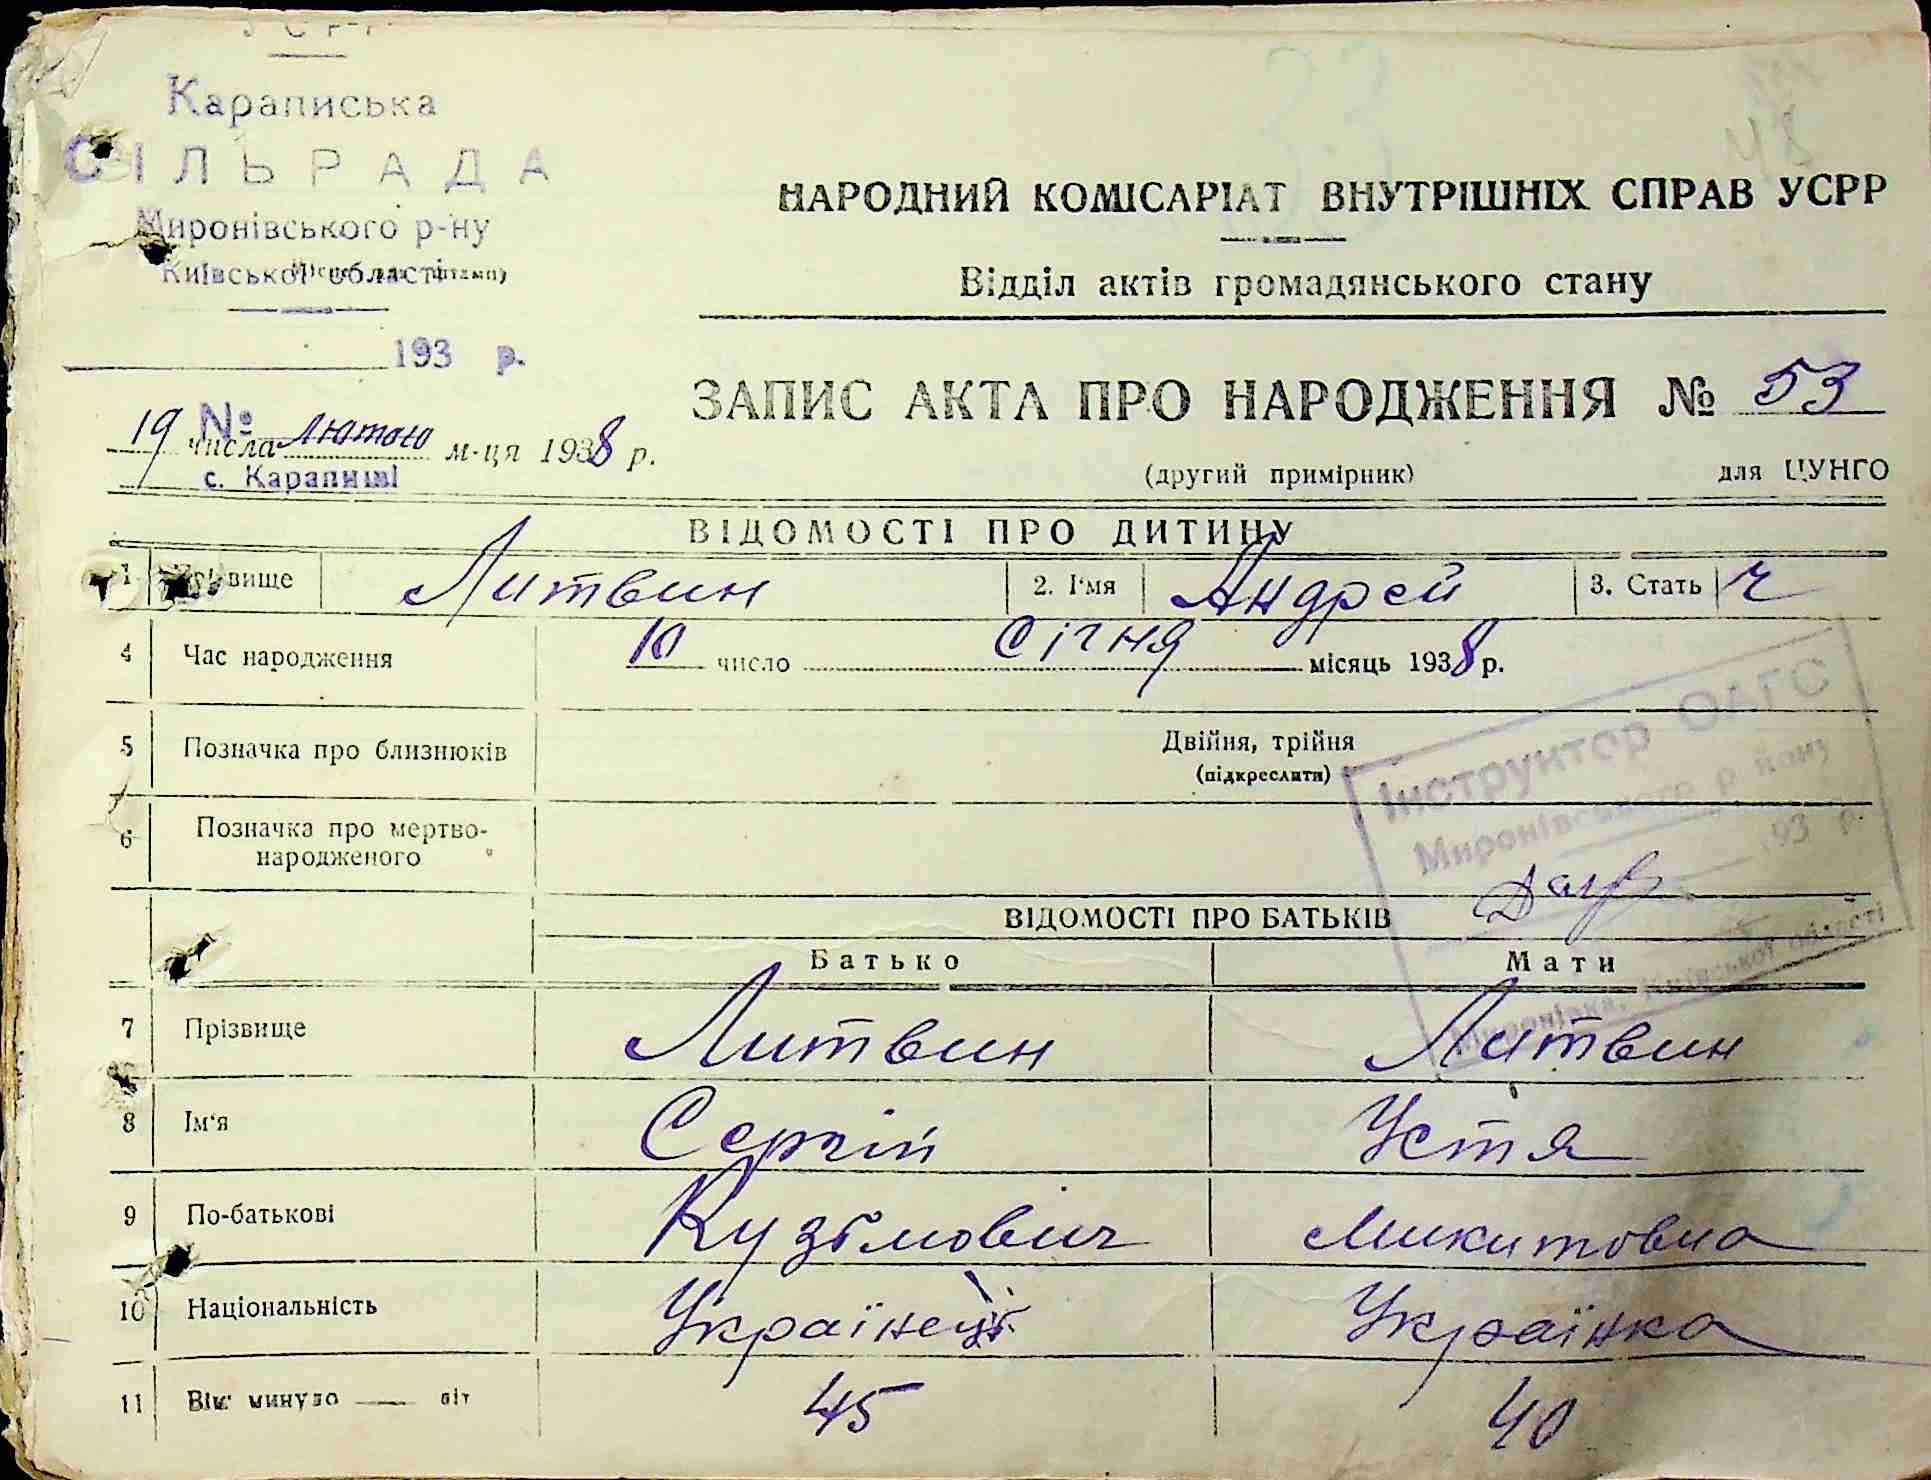 УСРР
Караписька
СІЛЬРАДА
Миронівського р-ну
Київської області
193 р.
№
с. Карапиші
48
НАРОДНИЙ КОМІСАРІАТ ВНУТРІШНІХ СПРАВ УСРР
Відділ актів громадянського стану
ЗАПИС АКТА ПРО НАРОДЖЕННЯ № 53
19 числа лютого м-ця 1938 р.
(другий примірник) для ЦУНГО
ВІДОМОСТІ ПРО ДИТИНУ
1 Прізвище Литвин 2. І'мя Андрей 3. Стать ч
4 Час народження 10 число Січня місяць 1938 р.
5 Позначка про близнюків Двійня, трійня
(підкреслити)
6 Позначка про мертво-
народженого
Інструктор ОАГС
Миронівського району
193 р.
Миронівка, Київської області
ВІДОМОСТІ ПРО БАТЬКІВ
Батько Мати
7 Прізвище Литвин Литвин
8 Ім'я Сергій Устя
9 По-батькові Кузьмович Микитовна
10 Національність Українець Українка
11 Вік минуло — літ 45 40